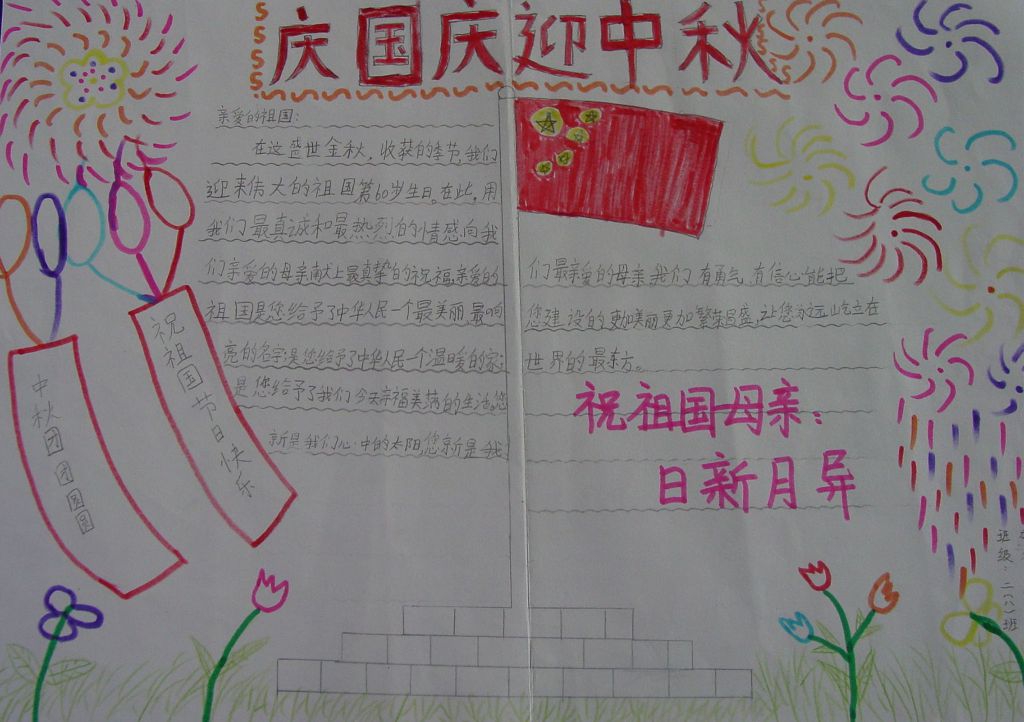 庆国庆迎中秋
亲爱的祖国:
在这盛世金秋,收获的季节,我们
迎来伟大的祖国第60岁生日。在此,用
我们最真诚和最热烈的情感向我
们亲爱的母亲献上最真挚的祝福,亲爱的
祖国是您给予了中华人民一个最美丽最响
亮的名字;是您给予了中华人民一个温暖的家;
是您给予了我们今天幸福美满的生活。您
新是我们心中的太阳,您新是我
们最亲爱的母亲,我们有勇气,有信心能把
您建设的更加美丽更加繁荣昌盛,让您永远屹立在
世界的最东方。
祝祖国母亲:
日新月异
祝祖国节日快乐
中秋团团圆圆
班级:二(八)班